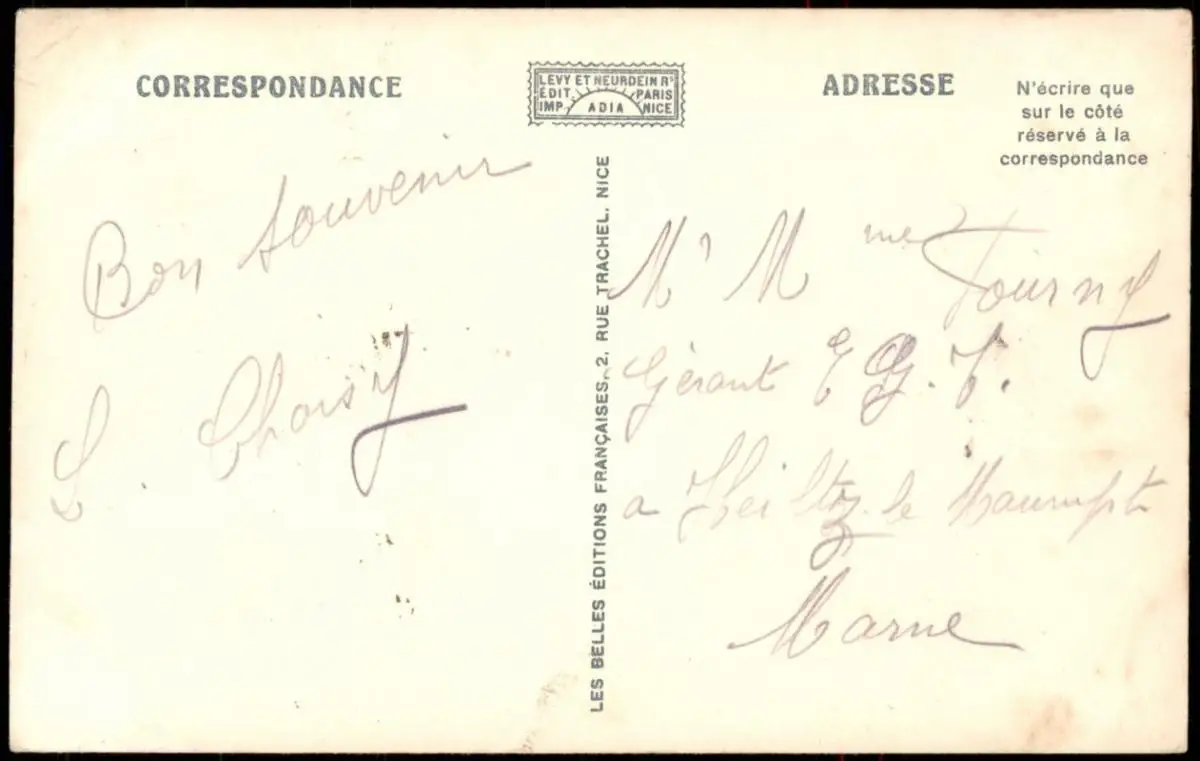 CORRESPONDANCE
LEVY ET NEURDEIN Rs
EDIT. PARIS
IMP. ADIA NICE
ADRESSE
N'écrire que
sur le côté
réservé à la
correspondance
Bon souvenir
L. Choisy
LES BELLES ÉDITIONS FRANÇAISES, 2, RUE TRACHEL, NICE
Mr Mme Tourny
Gérant E G. F.
a Heiltz-le Maurupt
Marne